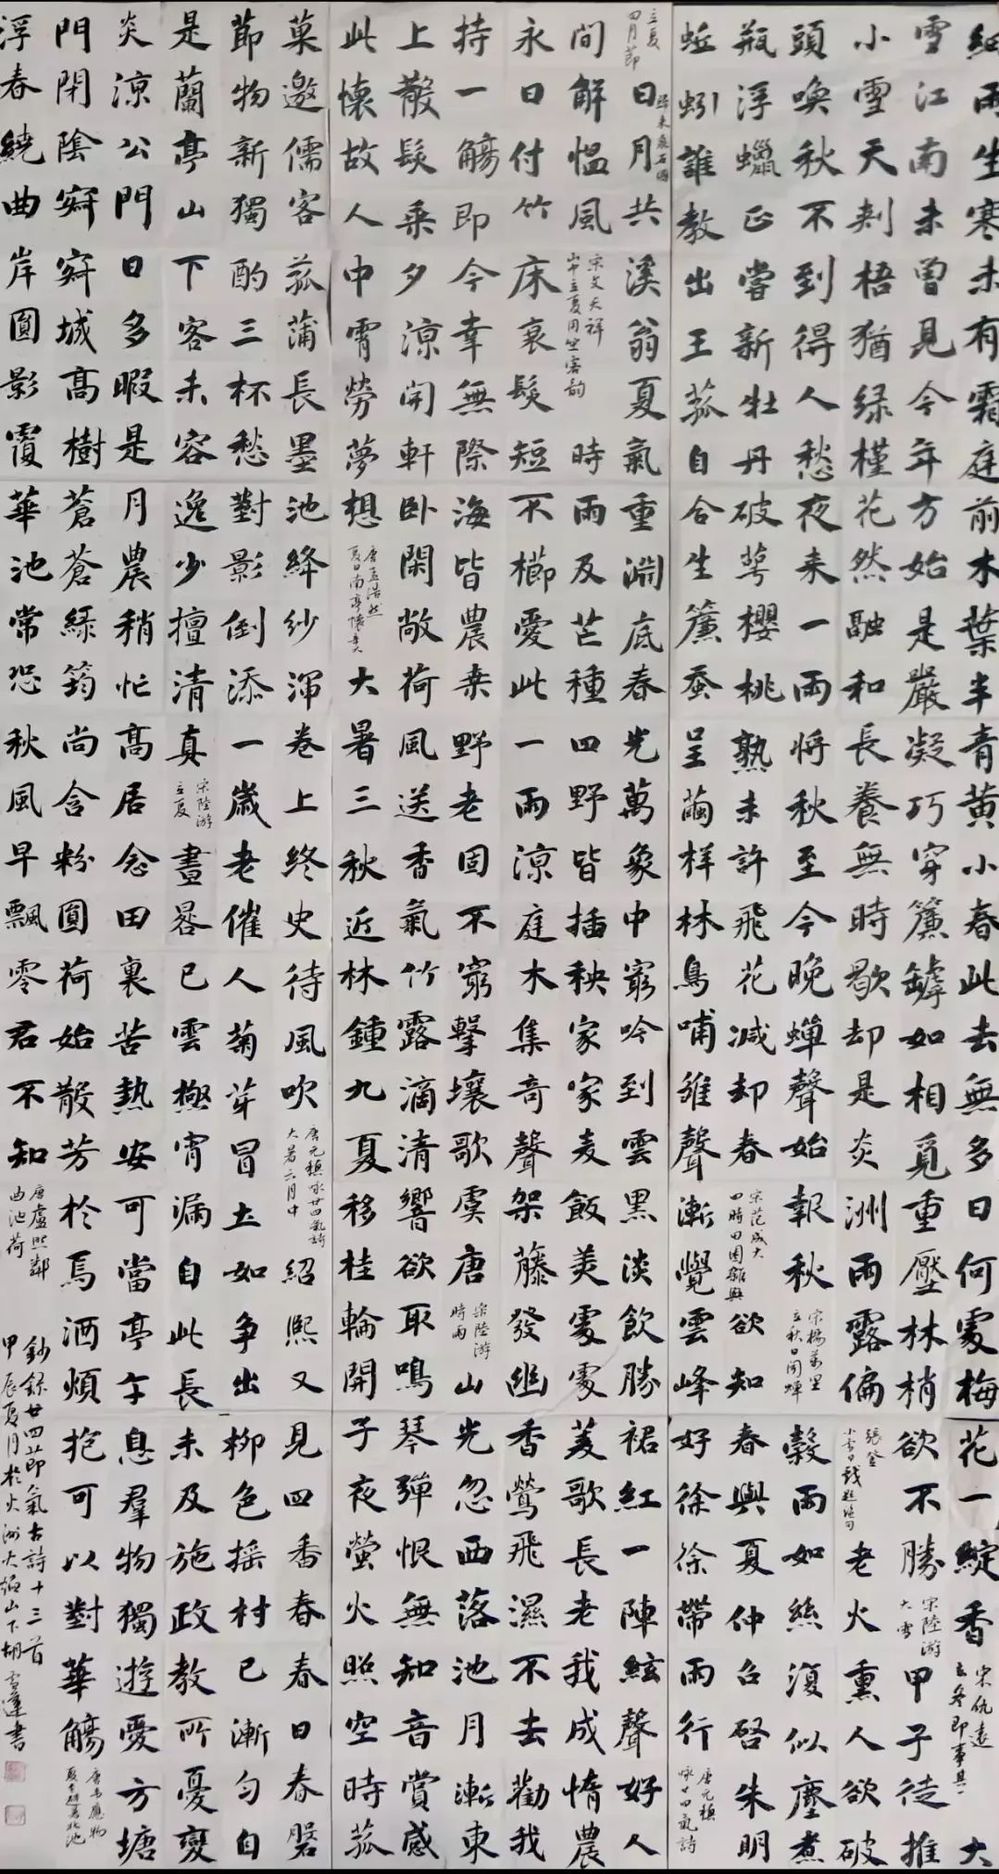 細雨生寒未有霜庭前木葉半青黃小春此去無多日何處梅花一綻香宋仇遠立冬即事其一大
雪江南未曾見今年方始是嚴凝巧穿簾罅如相覓重壓林梢欲不勝宋陸游大雪甲子徒推
小雪天刾梧猶緑槿花然融和長養無時歇却是炎洲雨露偏張登小雪日戲題絕句老火熏人欲破
頭喚秋不到得人愁夜来一雨將秋至今晚蟬聲始報秋宋楊萬里立秋日聞蟬穀雨如絲復似塵煮
瓶浮蠟正嘗新牡丹破萼櫻桃熟未許飛花減却春宋范成大四時田園雜興欲知春與夏仲吕啓朱明
蚯蚓誰教出王菰自合生簾蚕呈繭样林鳥哺雏聲漸覺雲峰好徐徐帶雨行唐元稹咏廿四氣詩
立夏四月節歸来泉石國日月共溪翁夏氣重淵底春光萬象中窮吟到雲黑淡飲勝裙紅一陣絃聲好人
間解愠風宋文天祥山中立夏用坐客韵時雨及芒種四野皆插秧家家麦飯美處處菱歌長老我成惰農
永日付竹床衰髮短不櫛愛此一雨涼庭木集奇聲架藤發幽香鶯飛濕不去勸我
持一觴即今幸無際海皆農桒野老固不窮擊壤歌虞唐宋陸游時雨山光忽西落池月漸東
上散髮乘夕涼開軒卧閑敞荷風送香氣竹露滴清響欲取鳴琴彈恨無知音賞感
此懷故人中宵勞夢想唐孟浩然夏日南亭懷辛大大暑三秋近林鍾九夏移桂輪開子夜螢火照空時菰
菓邀儒客菰蒲長墨池絳纱渾卷上終史待風吹唐元稹咏廿四氣詩大暑六月中紹熙又見四香春春日春盤
節物新獨酌三杯愁對影倒添一歲老催人菊芽冒土如爭出柳色摇村已漸匀自
是蘭亭山下客未容逸少擅清真宋陸游立夏晝晷已雲極宵漏自此長未及施政教所憂變
炎涼公門日多暇是月農稍忙高居念田裏苦熱安可當亭午息羣物獨遊愛方塘
門閉陰寂寂城高樹蒼蒼綠筠尚含粉圓荷始散芳於焉洒煩抱可以對華觴唐韋應物夏至避暑北池
浮春繞曲岸圓影覆華池常恐秋風早飄零君不知唐盧照鄰曲池荷
鈔録廿四節氣古詩十三首
甲辰夏月於火洲火焰山下胡雪蓮書